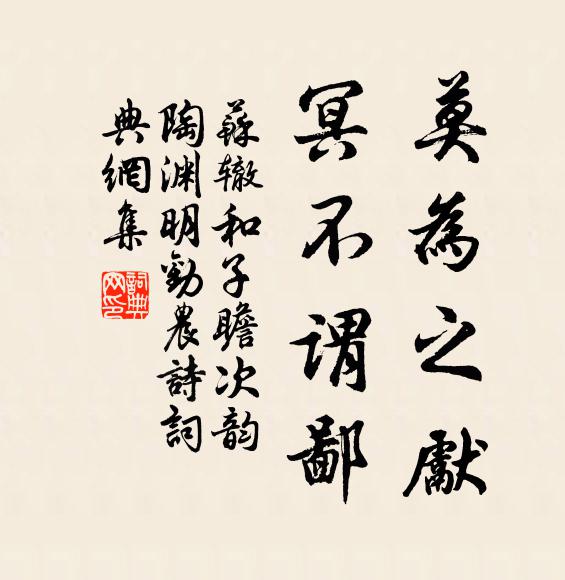 莫為之獻
冥不谓鄙
蘇辙和子瞻次韵
陶渊明勸農詩詞
典網集
詞典网印